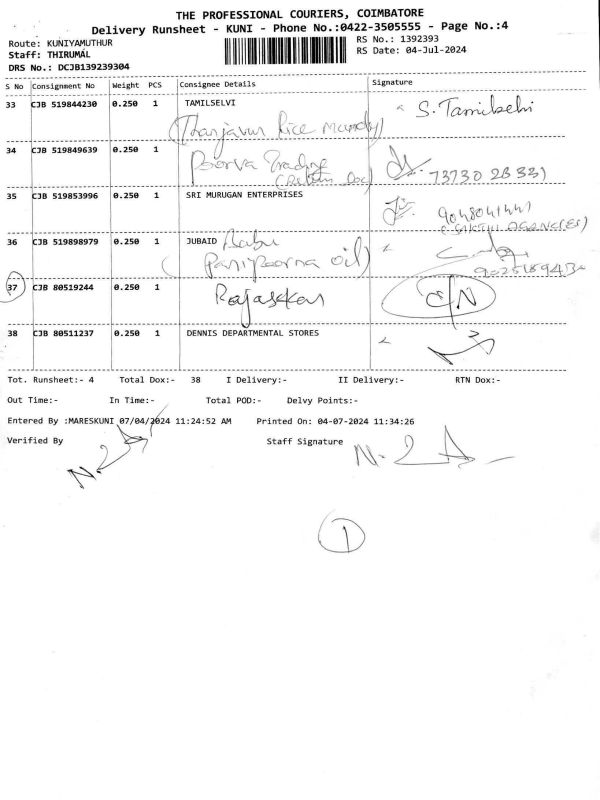 THE PROFESSIONAL COURIERS, COIMBATORE
Delivery Runsheet - KUNI - Phone No.:0422-3505555 - Page No.:4
Route: KUNIYAMUTHUR
RS No.: 1392393
Staff: THIRUMAL
RS Date: 04-Jul-2024
DRS No.: DCJB139239304
S No Consignment No Weight PCS Consignee Details Signature
33 CJB 519844230 0.250 1 TAMILSELVI S. Tamilselvi
(Thanjavur Rice Mandy)
34 CJB 519849639 0.250 1 Poorva Trading
(Return Doc) 73730 28331
35 CJB 519853996 0.250 1 SRI MURUGAN ENTERPRISES
(SAKTHI AGENCIES)
36 CJB 519898979 0.250 1 JUBAID Babu
(Panipoorna oil)
37 CJB 80519244 0.250 1 Rajasekar C/N
38 CJB 80511237 0.250 1 DENNIS DEPARTMENTAL STORES
Tot. Runsheet:- 4 Total Dox:- 38 I Delivery:- II Delivery:- RTN Dox:-
Out Time:- In Time:- Total POD:- Delvy Points:-
Entered By :MARESKUNI 07/04/2024 11:24:52 AM Printed On: 04-07-2024 11:34:26
Verified By Staff Signature
1